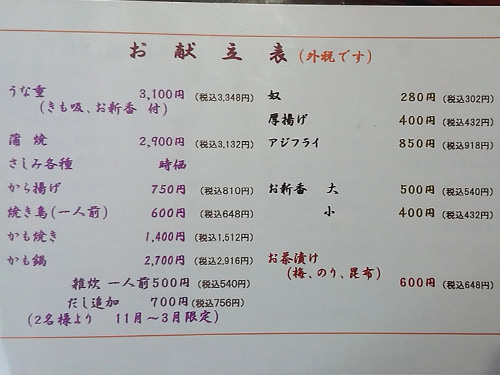 お献立表(外税です)
うな重 3,100円 (税込3,348円)
(きも吸、お新香 付)
蒲焼 2,900円 (税込3,132円)
さしみ各種 時価
から揚げ 750円 (税込810円)
焼き鳥(一人前) 600円 (税込648円)
かも焼き 1,400円 (税込1,512円)
かも鍋 2,700円 (税込2,916円)
雑炊 一人前500円 (税込540円)
だし追加 700円 (税込756円)
(2名様より 11月～3月限定)
奴 280円 (税込302円)
厚揚げ 400円 (税込432円)
アジフライ 850円 (税込918円)
お新香 大 500円 (税込540円)
小 400円 (税込432円)
お茶漬け
(梅、のり、昆布)
600円 (税込648円)